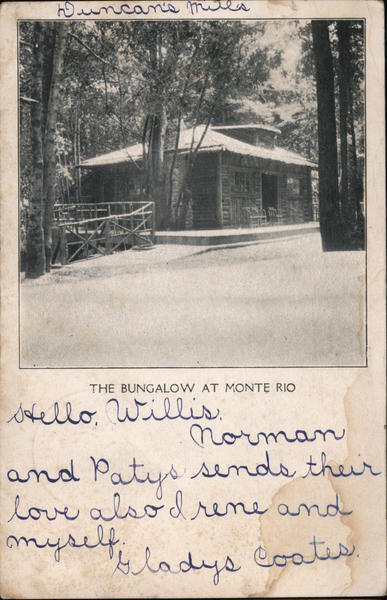 Duncan's Mills
THE BUNGALOW AT MONTE RIO
Hello, Willis.
Norman
and Patys sends their
love also Irene and
myself.
Gladys Coates.